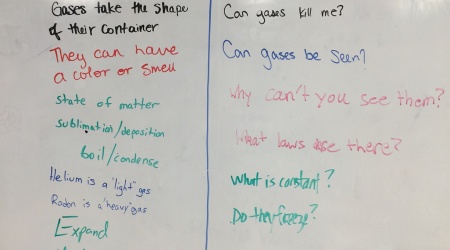 Gases take the shape
of their container
They can have
a color or smell
State of matter
sublimation/deposition
boil/condense
Helium is a "light" gas
Radon is a "heavy" gas
Expand
Can gases kill me?
Can gases be seen?
Why can't you see them?
What laws are there?
What is constant?
Do they freeze?